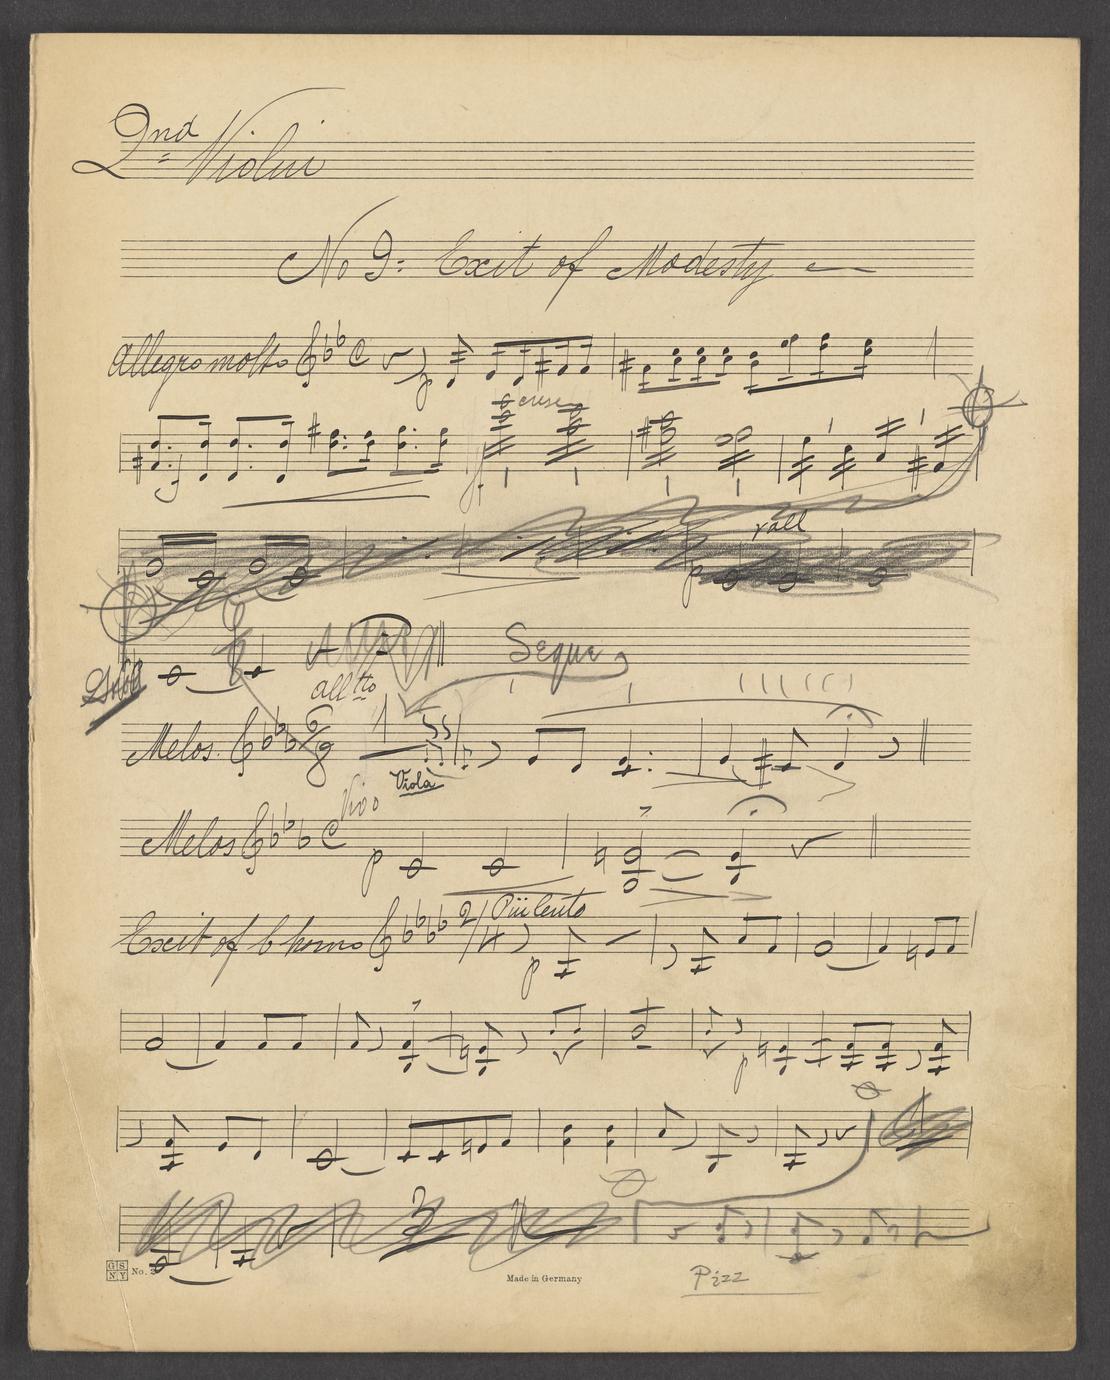 2nd Violin
No 9: Exit of Modesty
Allegro molto
cresc
rall
Segue
Alltto
Melos.
Viola
Vivo
Melos
p
Più lento
Exit of Chorus
p
p
Made in Germany
G S
N Y
No.
Pizz